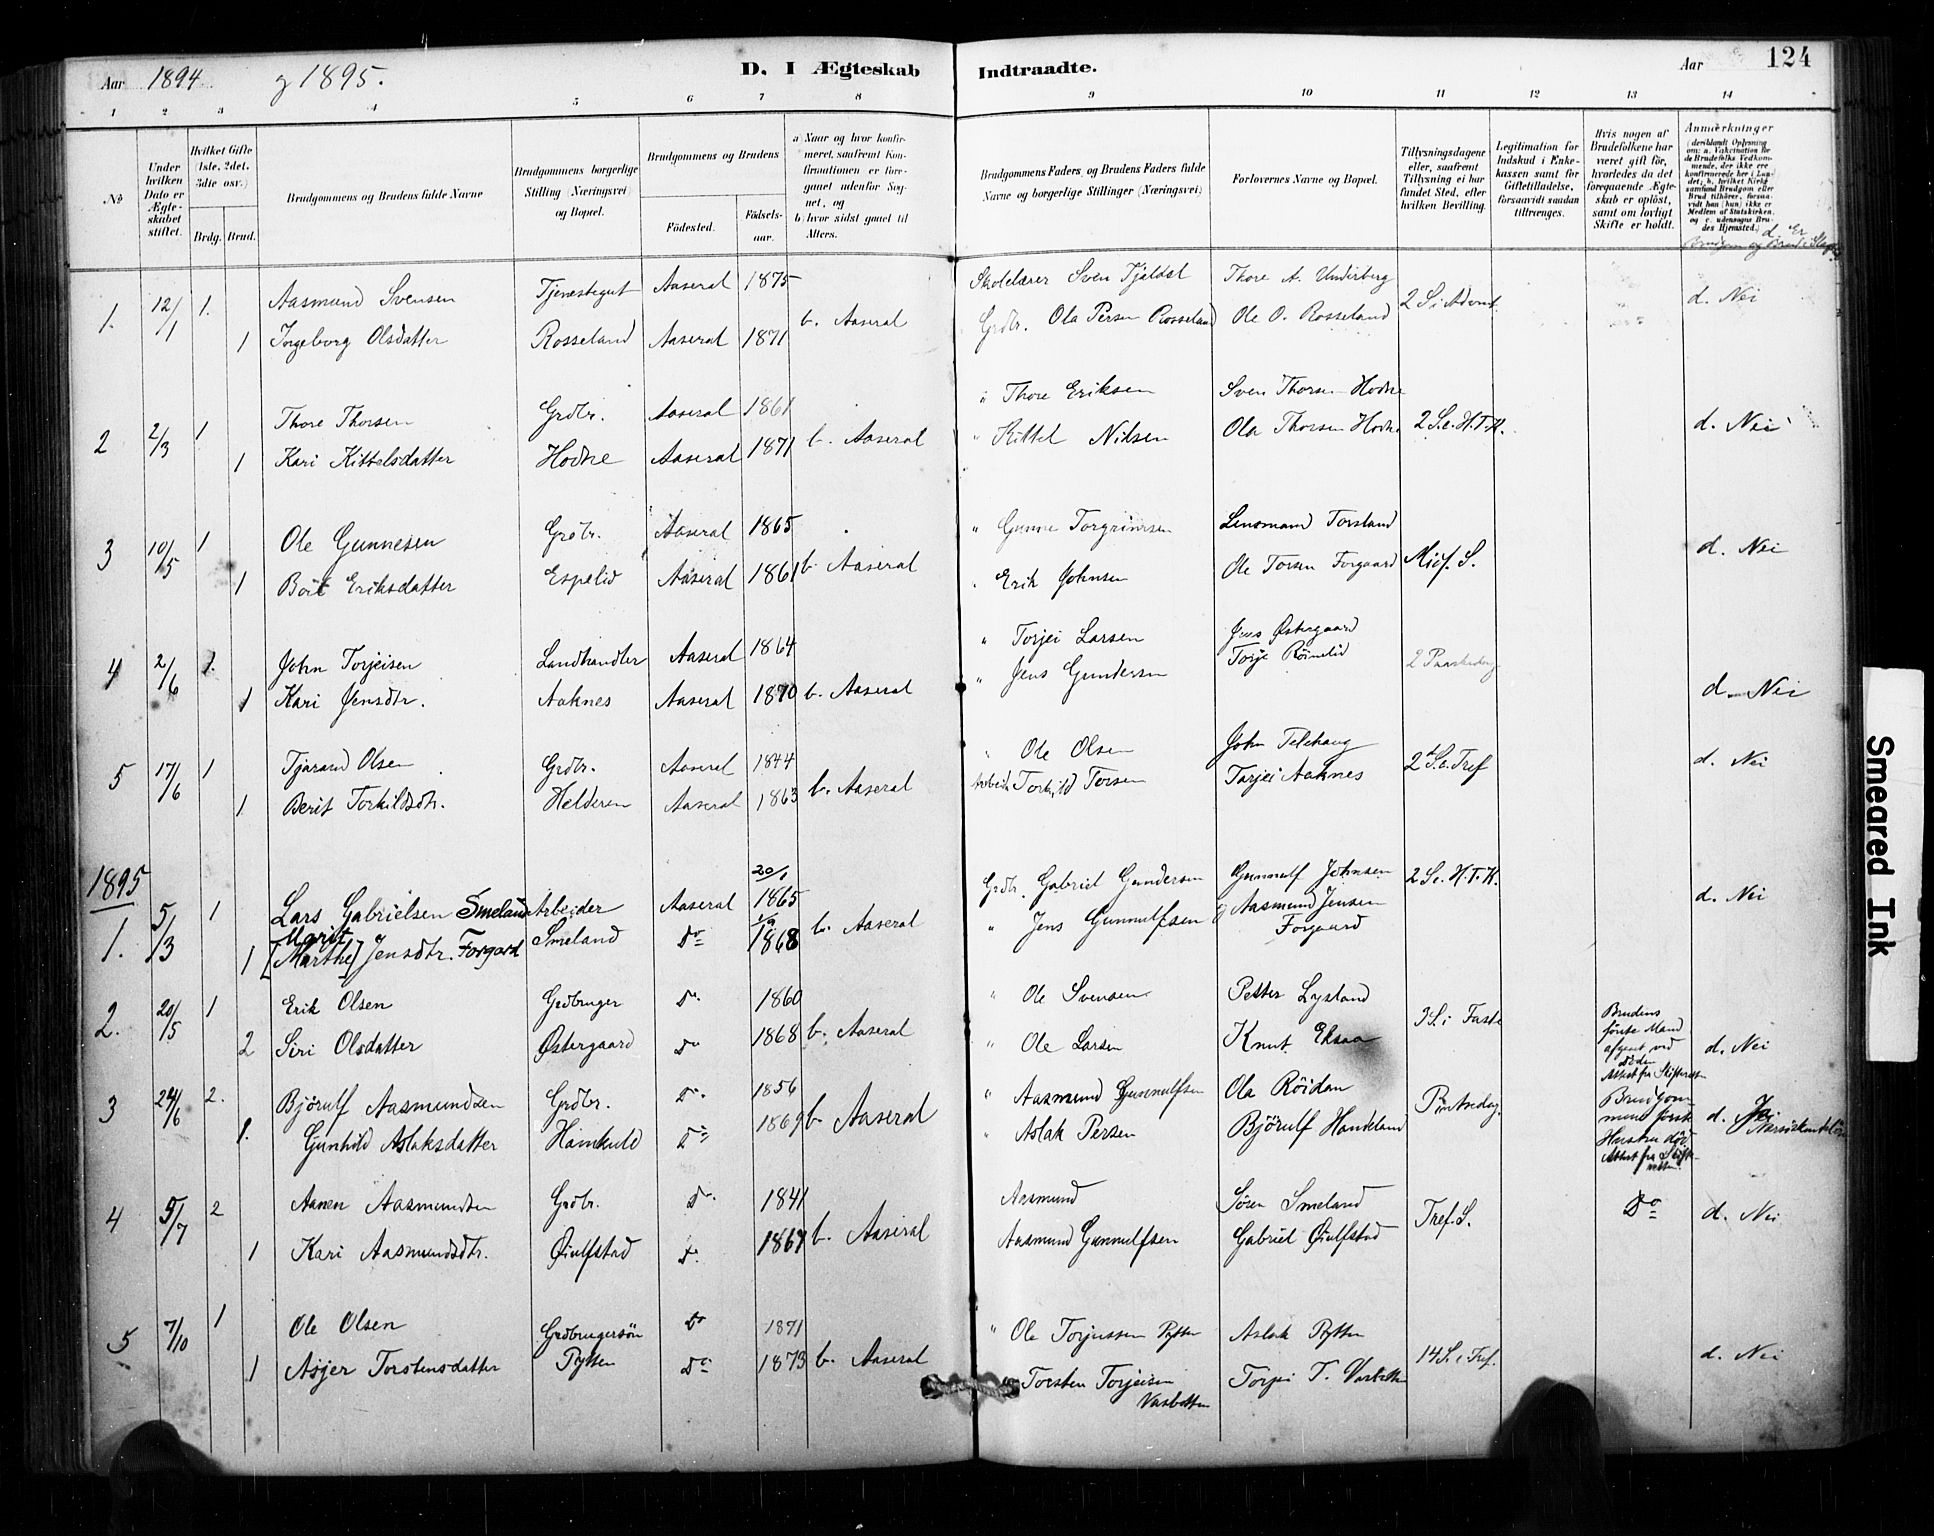 Aar 1894 og 1895. D. I Ægteskab Indtraadte. Aar 124
1 2 3 4 5 6 7 8 9 10 11 12 13 14
No
Under hvilken Dato er Ægteskabet stiftet.
Hvilket Gifte (1ste, 2det, 3die osv.)
Brdg. Brud.
Brudgommens og Brudens fulde Navne
Brudgommens borgerlige Stilling (Næringsvei) og Bopæl.
Brudgommens og Brudens
Fødested. Fødselsaar.
a) Naar og hvor konfirmeret, saafremt Konfirmationen er foregaaet udenfor Sognet, og
b) hvor sidst gaaet til Alters.
Brudgommens Faders, og Brudens Faders fulde Navne og borgerlige Stillinger (Næringsvei)
Forlovernes Navne og Bopæl.
Tillysningsdagene eller, saafremt Tillysning ei har fundet Sted, efter hvilken Bevilling.
Legitimation for Indskud i Enkekassen samt for Giftetilladelse, forsaavidt saadan tiltrænges.
Hvis nogen af Brudefolkene har været gift før, hvorledes da det foregaaende Ægteskab er opløst, samt om lovligt Skifte er holdt.
Anmærkninger
(deriblandt Oplysning om: a. Vakcination for de Brudefolks Vedkommende, der ikke ere konfirmerede her i Landet; b. hvilket Kirkesamfund Brudgom eller Brud tilhører, forsaavidt han (hun) ikke er Medlem af Statskirken, og c. udensogns Brudes Hjemsted.)
d. Er Brudgom og Brud i Slægt
1. 12/1 1. Aasmund Svensen Tjenestegut Aaseral 1875 Skolelærer Sven Tjaldal Thore A. Underberg
1 Ingeborg Olsdatter Rosseland Aaseral 1871 b. Aaseral Grdbr. Ola Persen Rosseland Ole O. Rosseland 2 S. i Advent. d. Nei
2 2/3 1 Thore Thorsen Grdbr. Aaseral 1861 " Thore Eriksen Sven Thorsen Hodne
1 Kari Kittelsdatter Hodne Aaseral 1871 b. Aaseral " Kittel Nilsen Ola Thorsen Hodne 2 S. e. H. T. K. d. Nei
3 10/5 1 Ole Gunnesen Grdbr. Aaseral 1865 " Gunne Torgrimsen Lensmand Torsland
1 Borit Eriksdatter Espelid Aaseral 1861 b. Aaseral " Erik Johnsen Ole Torsen Forgaard Micf. S. d. Nei
4 2/6 1. John Torjeisen Landhandler Aaseral 1864 " Torjei Larsen Jens Østergaard
1 Kari Jensdtr. Aaknes Aaseral 1870 b. Aaseral " Jens Gundersen Torje Röinelid 2 Paaskedag d. Nei
5 17/6 1 Tjarand Olsen Grdbr. Aaseral 1844 " Ole Olsen John Telehaug
1 Berit Torkildsdtr. Helderen Aaseral 1863 b. Aaseral Arbeid. Torkild Torsen Torjei Aaknes 2d S. e. Tref d. Nei
1895
1. 5/3 1 Lars Gabrielsen Smeland Arbeider Aaseral 20/1 1865 Grdbr. Gabriel Gundersen Gunnulf Johnsen 2 S. e. H. T. K.
1 Marit [Marthe] Jensdtr. Forgard Smeland Do 1/9 1868 b. Aaseral " Jens Gunnulfsen og Aasmund Jensen Forgaard d. Nei
2. 20/5 1 Erik Olsen Grdbruger Do 1860 " Ole Svensen Petter Lysland
2 Siri Olsdatter Østergaard Do 1868 b. Aaseral " Ole Larsen Knut Eksaa 3 S. i Faste Brudens første Mand afgaaet ved Döden Attest fra Skifteretten d. Nei
3 24/6 2. Björulf Aasmundsen Grdbr. Do 1856 " Aasmund Gunnulfsen Ola Röidan
1. Gunhild Aslaksdatter Hamkuld Do 1869 b. Aaseral " Aslak Persen Björulf Handeland Pintsedag Brudgommens første Hustru død Attest fra Skifteretten d. Ja
4 5/7 2 Aanen Aasmundsen Grdbr. Do 1841 Aasmund Sören Smeland
1 Kari Aasmundsdtr. Öiulfstad Do 1867 b. Aaseral Aasmund Gunnulfsen Gabriel Öiulfstad Tref. S. Do d. Nei
5 7/10 1 Ole Olsen Grdbrugersön Do 1871 " Ole Torjussen Pytten Aslak Pytten
1 Asjer Torstensdatter Pytten Do 1873 b. Aaseral " Torsten Torjeisen Vasbotten Torjei T. Vasbotten 14 S. e. Tref. d. Nei
Smeared Ink